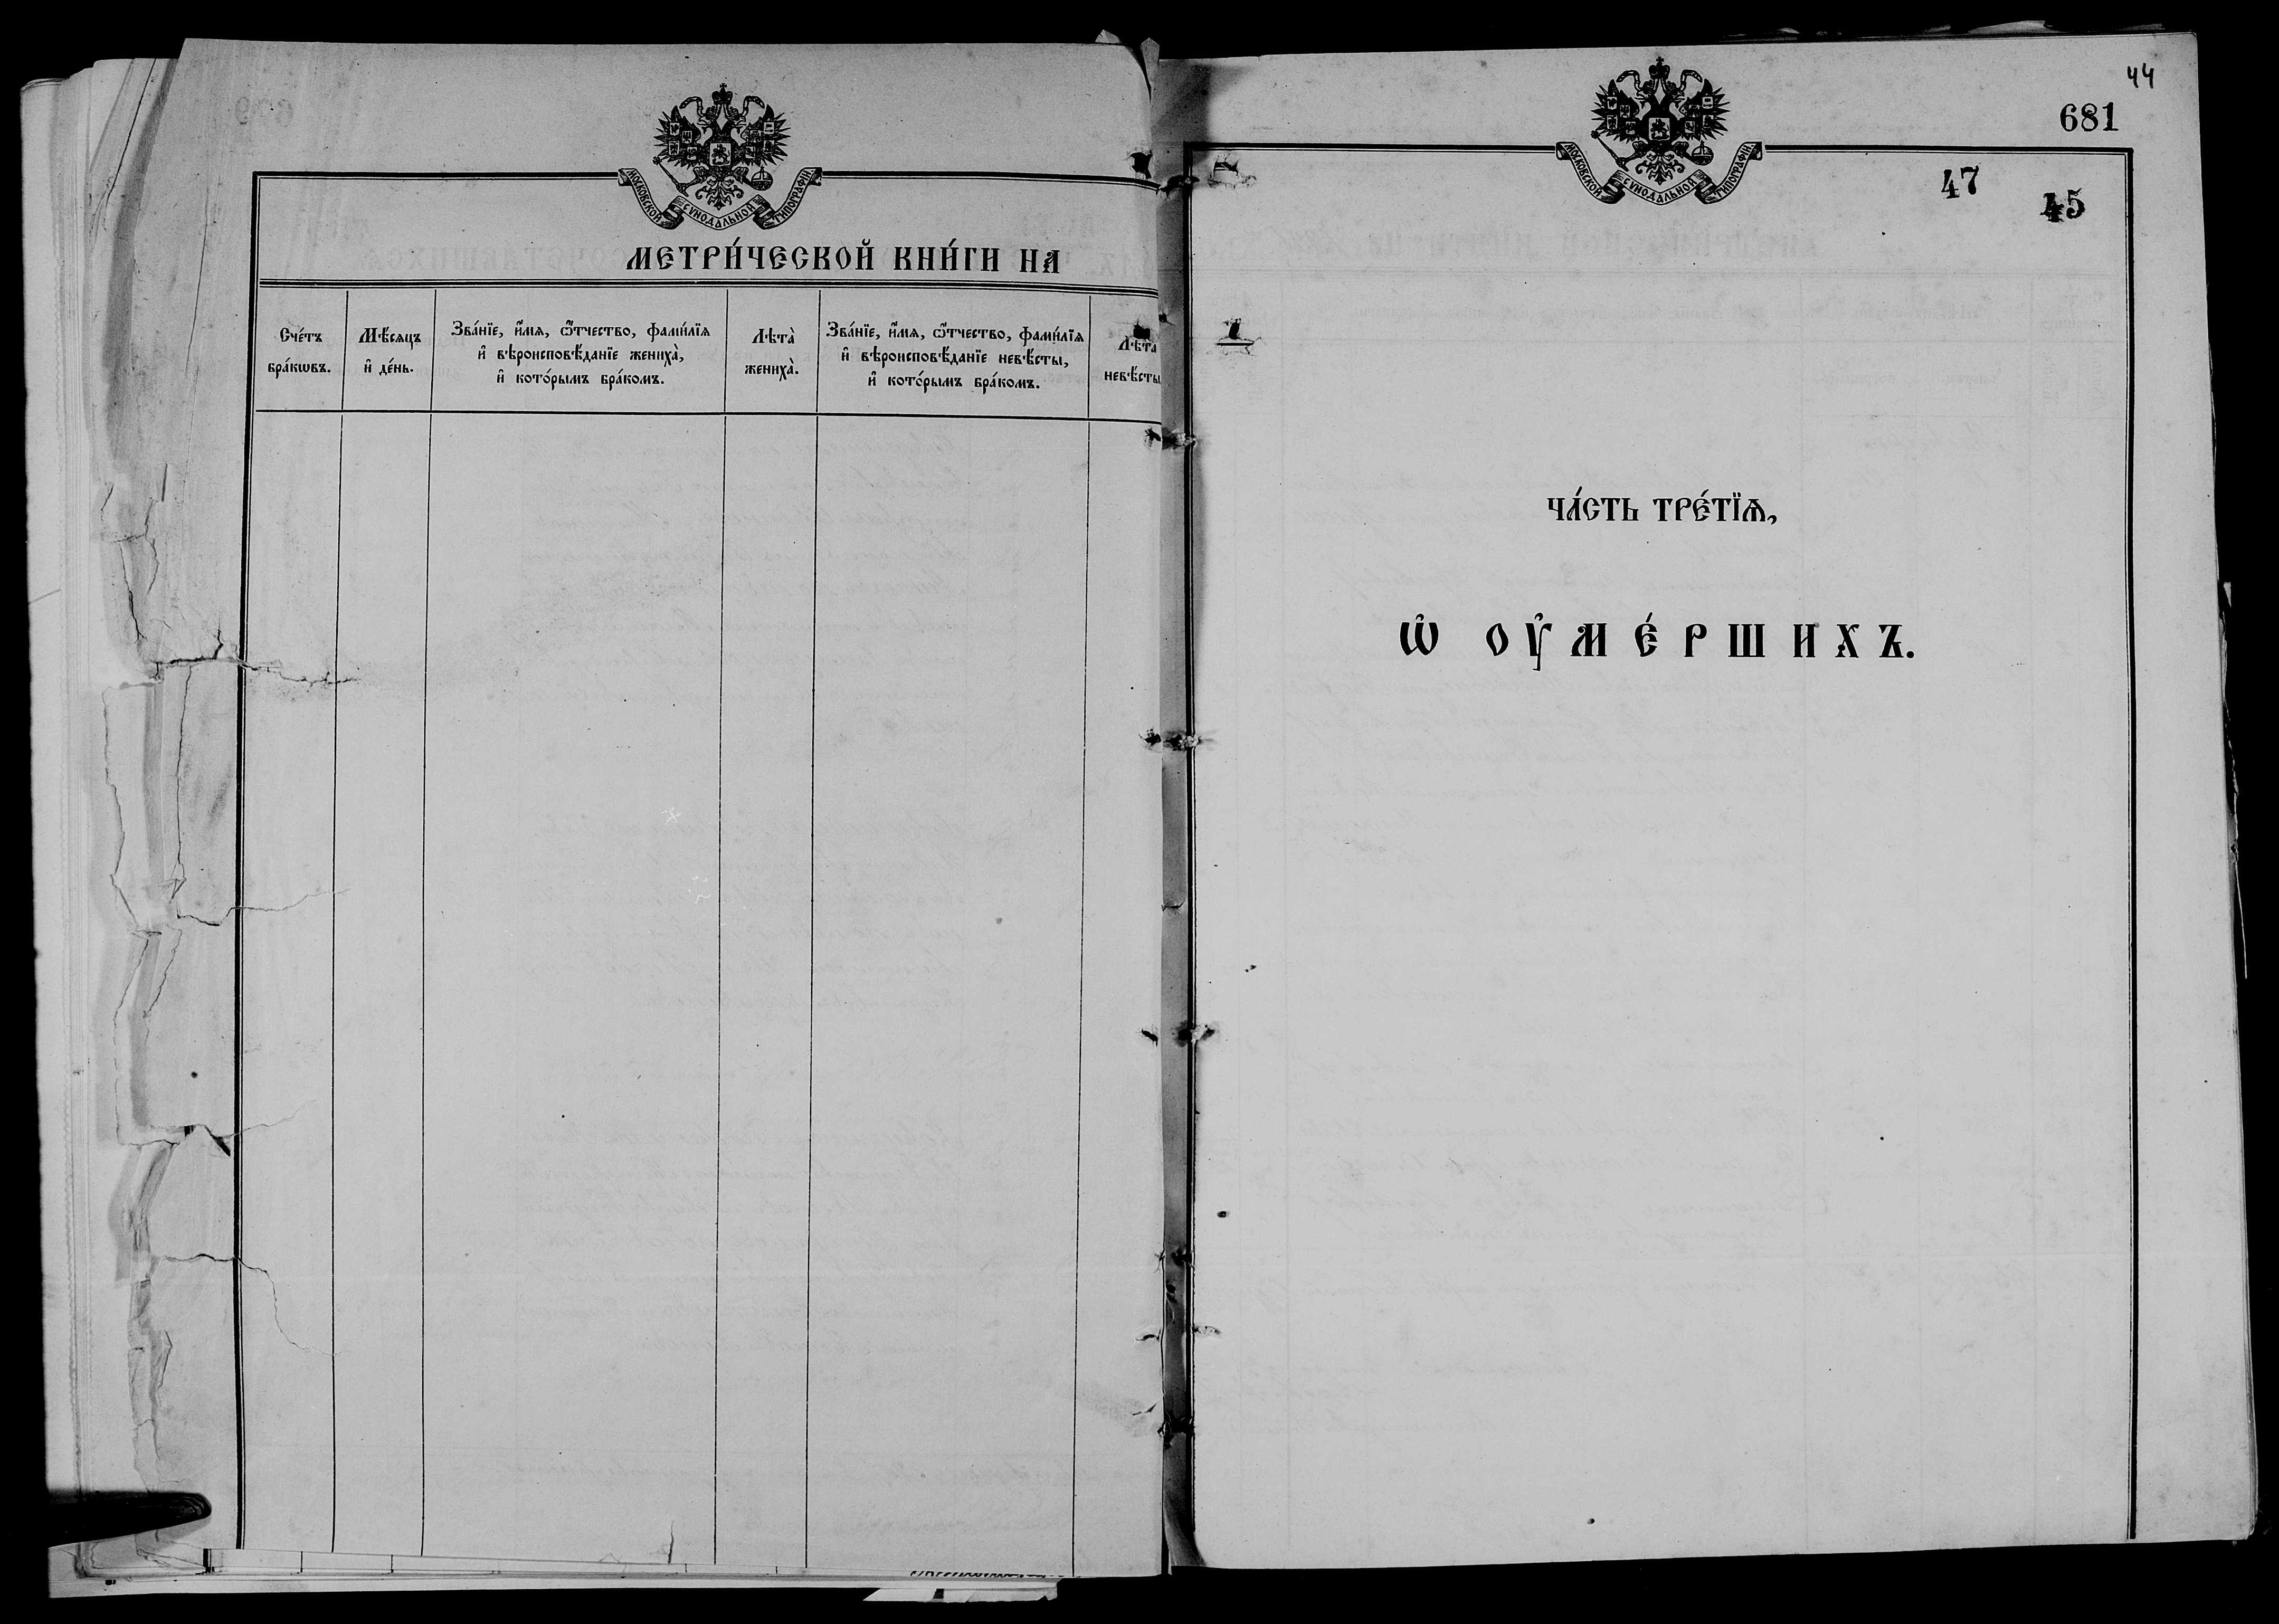 МОСКОВСКОЙ СѴНОДАЛЬНОЙ ТИПОГРАФІИ
МЕТРИ́ЧЕСКОЙ КНИ́ГИ НА
Сче́тъ
бра́кѡвъ.
Мѣ́сяцъ
и҆ де́нь.
Зва́нїе, и҆́мѧ, ѻ҆́тчество, фами́лїѧ
и҆ вѣроисповѣ́данїе жениха̀,
и҆ кото́рымъ бра́комъ.
Лѣта̀
жениха̀.
Зва́нїе, и҆́мѧ, ѻ҆́тчество, фами́лїѧ
и҆ вѣроисповѣ́данїе невѣ́сты,
и҆ кото́рымъ бра́комъ.
Лѣта
невѣ́сты
44
681
МОСКОВСКОЙ СѴНОДАЛЬНОЙ ТИПОГРАФІИ
47
45
ЧА́СТЬ ТРЕ́ТЇѦ,
Ѡ҆ ОУ҆МЕ́РШИХЪ.